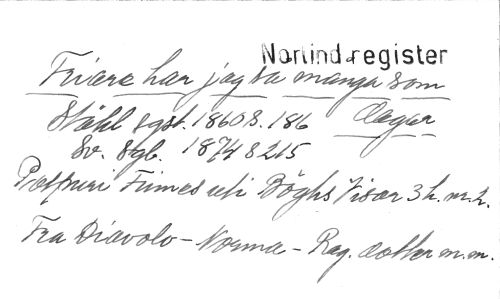 Norlind-register
Friare har jag så många som
dagar
Ståhl sgst. 1860 S. 186
Sv. sgb. 1874 S 215
Finnes uti Böghs Visor 3 h. nr. 2.
Fra Diavolo - Norma - Reg. dotter m.m.